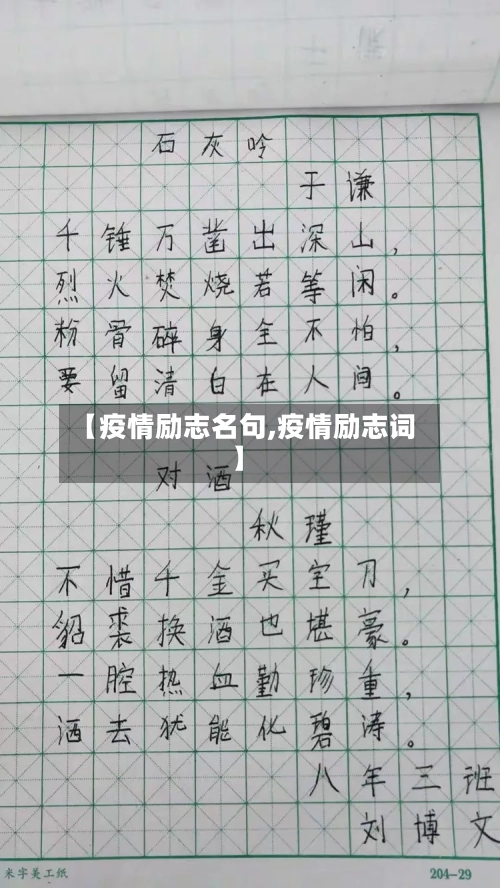 石灰吟
于谦
千锤万凿出深山，
烈火焚烧若等闲。
粉骨碎身全不怕，
要留清白在人间。
【疫情励志名句,疫情励志词
】
对酒
秋瑾
不惜千金买宝刀，
貂裘换酒也堪豪。
一腔热血勤珍重，
洒去犹能化碧涛。
八年三班
刘博文
米字美工纸
204-29